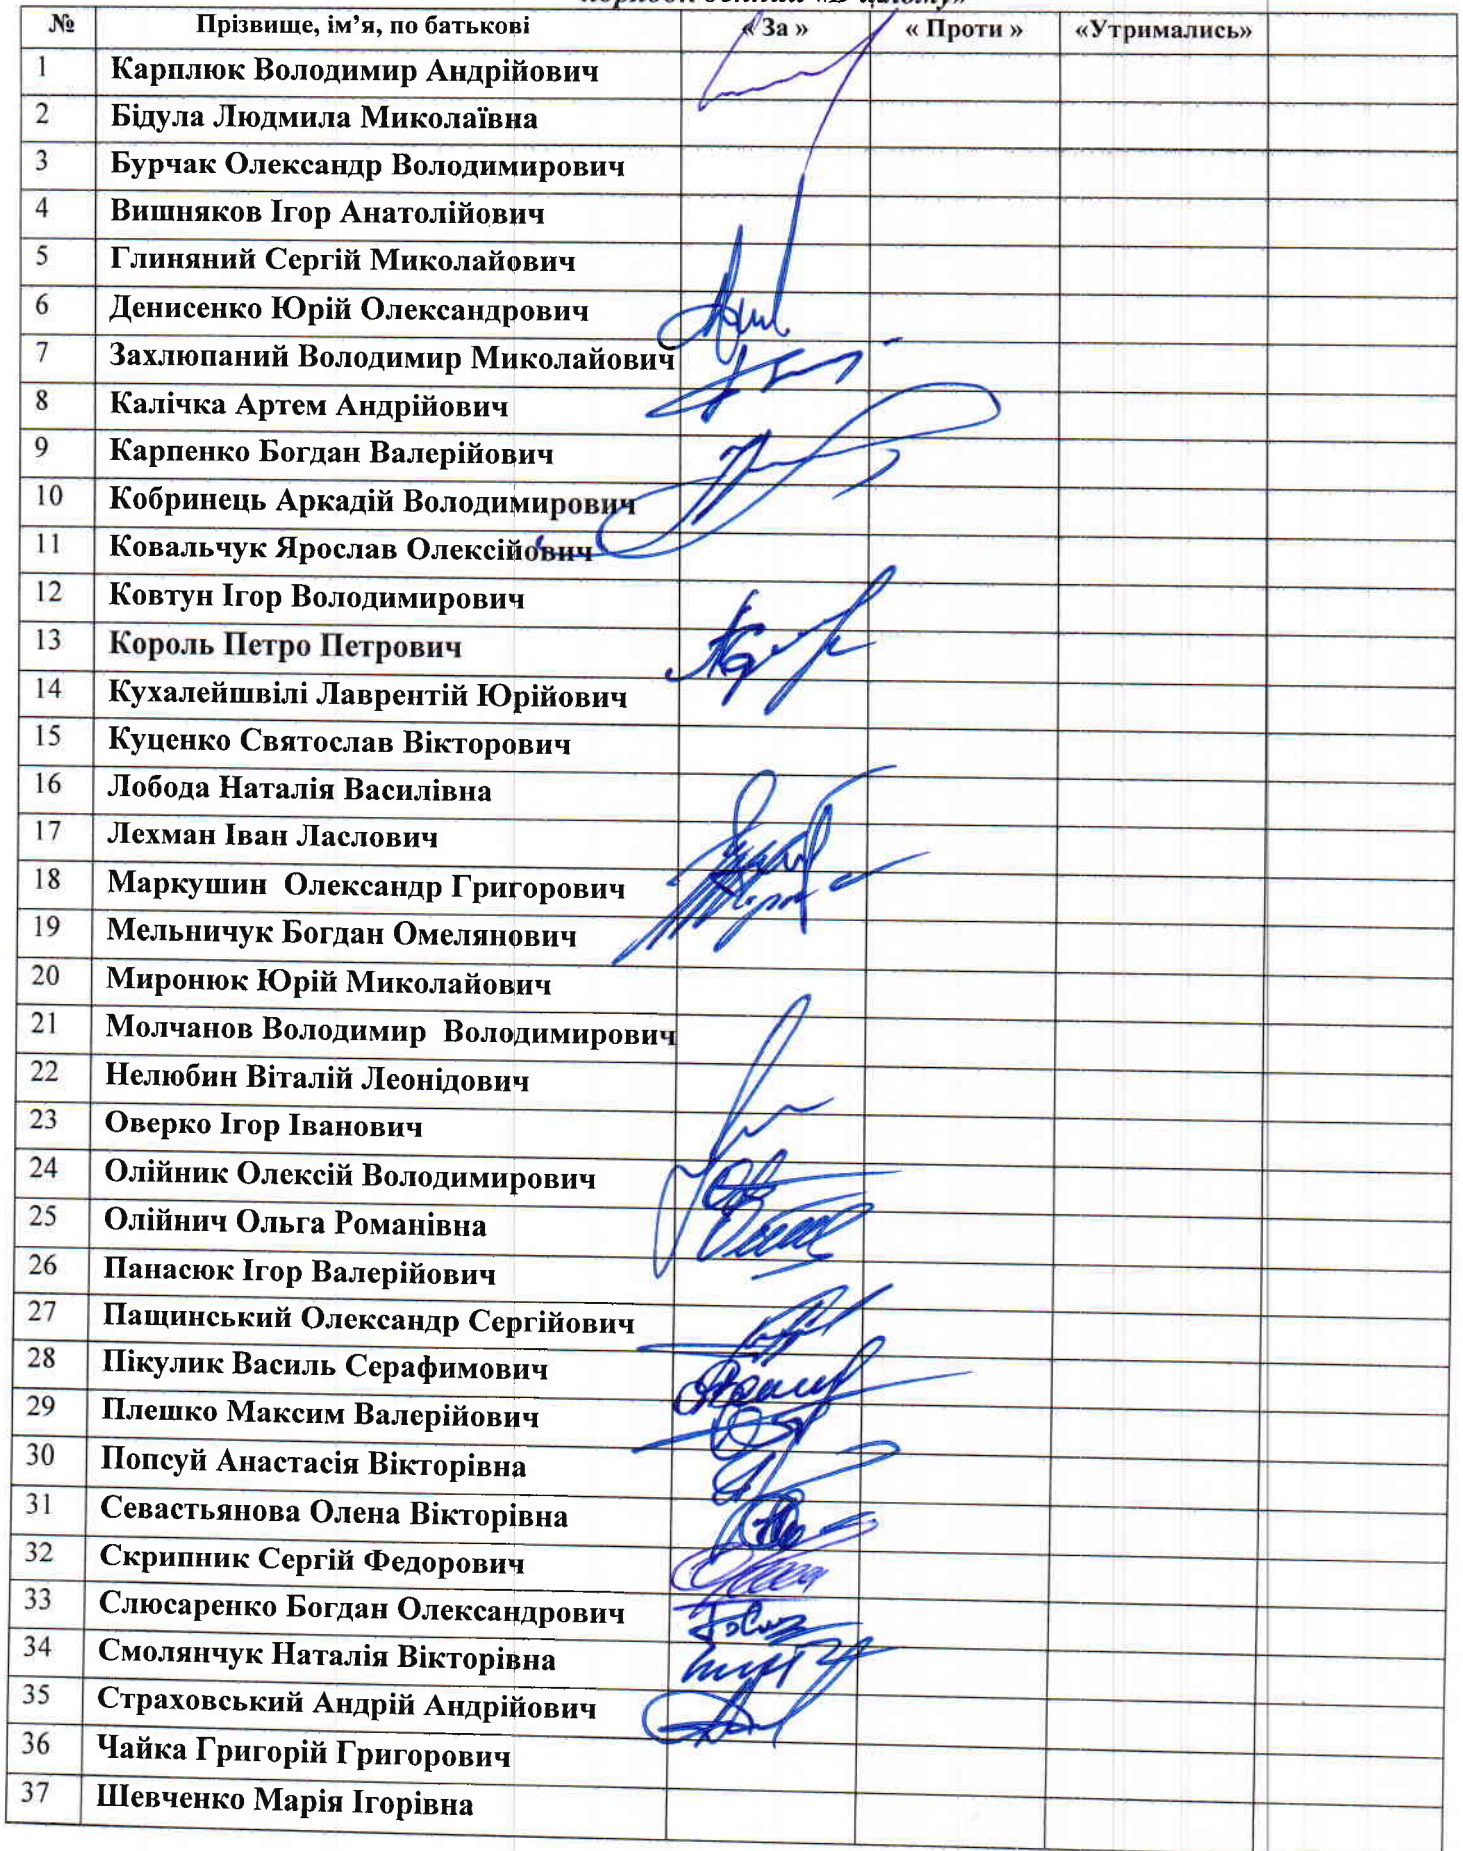 порядок денний «В цілому»
№ Прізвище, ім’я, по батькові « За » « Проти » «Утримались»
1 Карплюк Володимир Андрійович
2 Бідула Людмила Миколаївна
3 Бурчак Олександр Володимирович
4 Вишняков Ігор Анатолійович
5 Глиняний Сергій Миколайович
6 Денисенко Юрій Олександрович
7 Захлюпаний Володимир Миколайович
8 Калічка Артем Андрійович
9 Карпенко Богдан Валерійович
10 Кобринець Аркадій Володимирович
11 Ковальчук Ярослав Олексійович
12 Ковтун Ігор Володимирович
13 Король Петро Петрович
14 Кухалейшвілі Лаврентій Юрійович
15 Куценко Святослав Вікторович
16 Лобода Наталія Василівна
17 Лехман Іван Ласлович
18 Маркушин Олександр Григорович
19 Мельничук Богдан Омелянович
20 Миронюк Юрій Миколайович
21 Молчанов Володимир Володимирович
22 Нелюбин Віталій Леонідович
23 Оверко Ігор Іванович
24 Олійник Олексій Володимирович
25 Олійнич Ольга Романівна
26 Панасюк Ігор Валерійович
27 Пащинський Олександр Сергійович
28 Пікулик Василь Серафимович
29 Плешко Максим Валерійович
30 Попсуй Анастасія Вікторівна
31 Севастьянова Олена Вікторівна
32 Скрипник Сергій Федорович
33 Слюсаренко Богдан Олександрович
34 Смолянчук Наталія Вікторівна
35 Страховський Андрій Андрійович
36 Чайка Григорій Григорович
37 Шевченко Марія Ігорівна